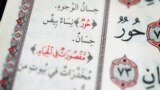 حِسَانُ الوُجُوهِ.
﴿حُورٌ﴾ نِسَاءٌ بِيضٌ
حِسَانٌ.
﴿مَقْصُورَاتٌ فِي الْخِيَامِ﴾
مُخَدَّرَاتٌ فِي بُيُوتٍ مِنَ
حُورٌ
٧٣